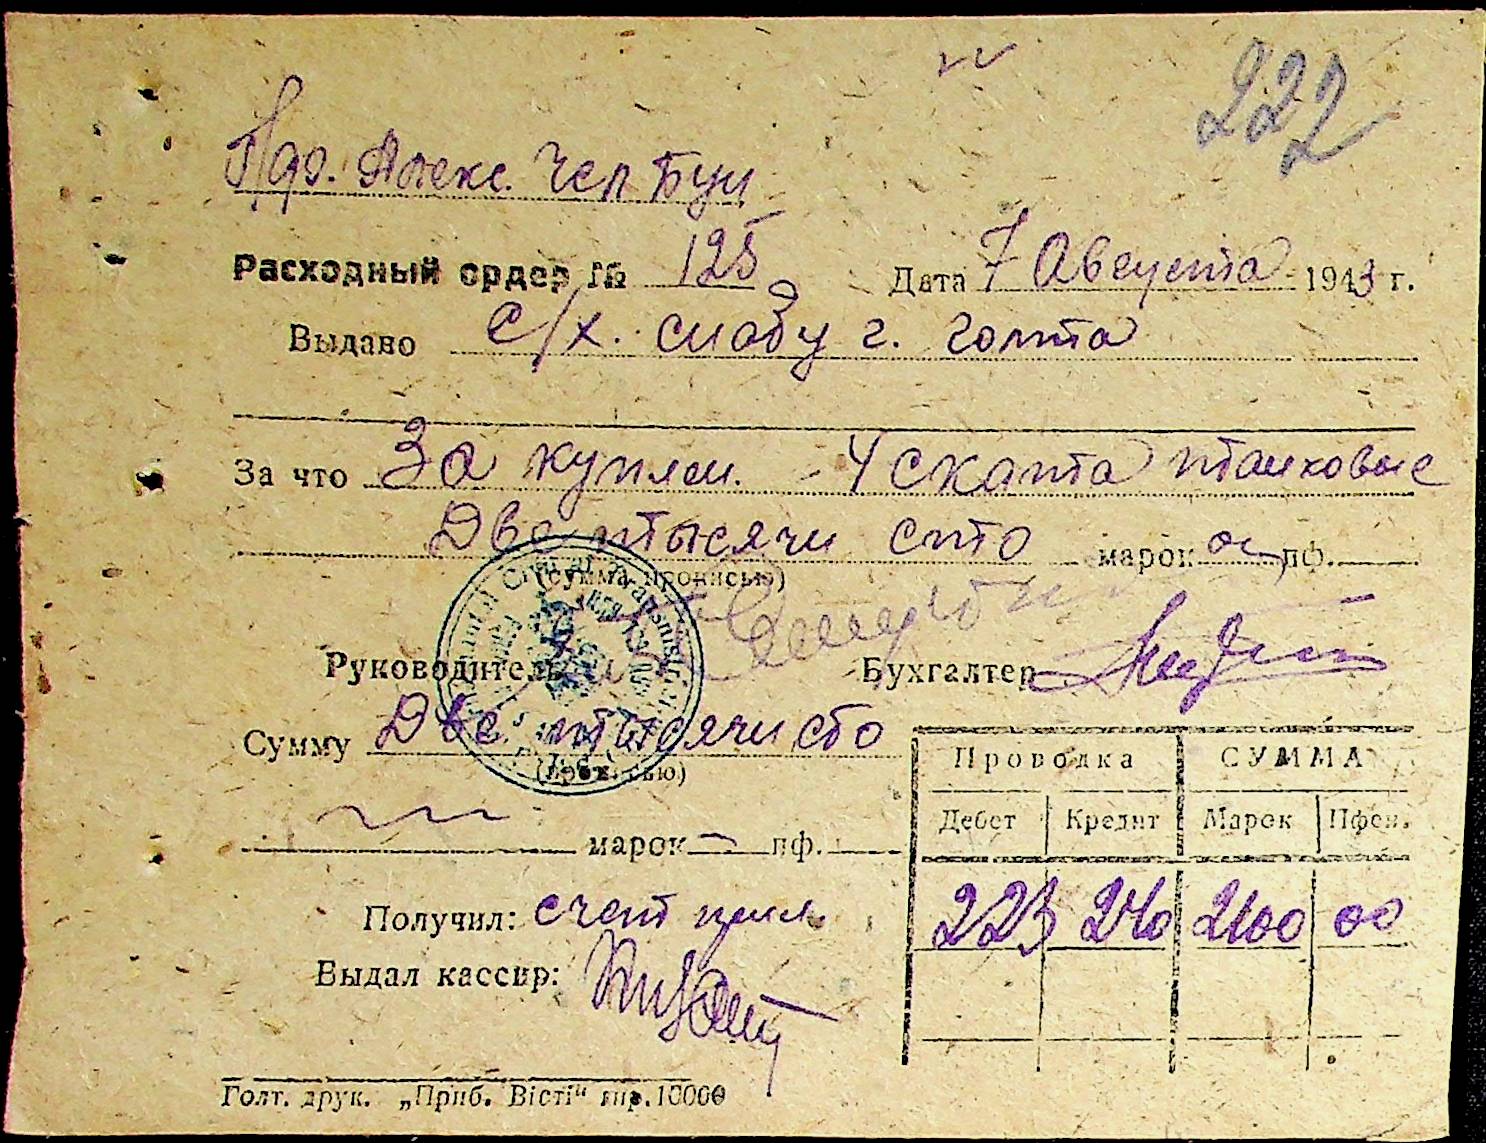 222
Алекс.
Расходный ордер № 125 Дата 7 Августа 1943 г.
Выдано с/х. снабу г. Голта
За что За куплен. 4 ската танковые
Две тысячи сто марок 00 пф.
(сумма прописью)
Руководитель Бухгалтер
Сумму Две тысячи сто
(прописью)
марок — пф.
Проводка СУММА
Дебет Кредит Марок Пфен.
223 240 2100 00
Получил: счет прил.
Выдал кассир:
Голт. друк. „Приб. Вісті“ тир. 10000